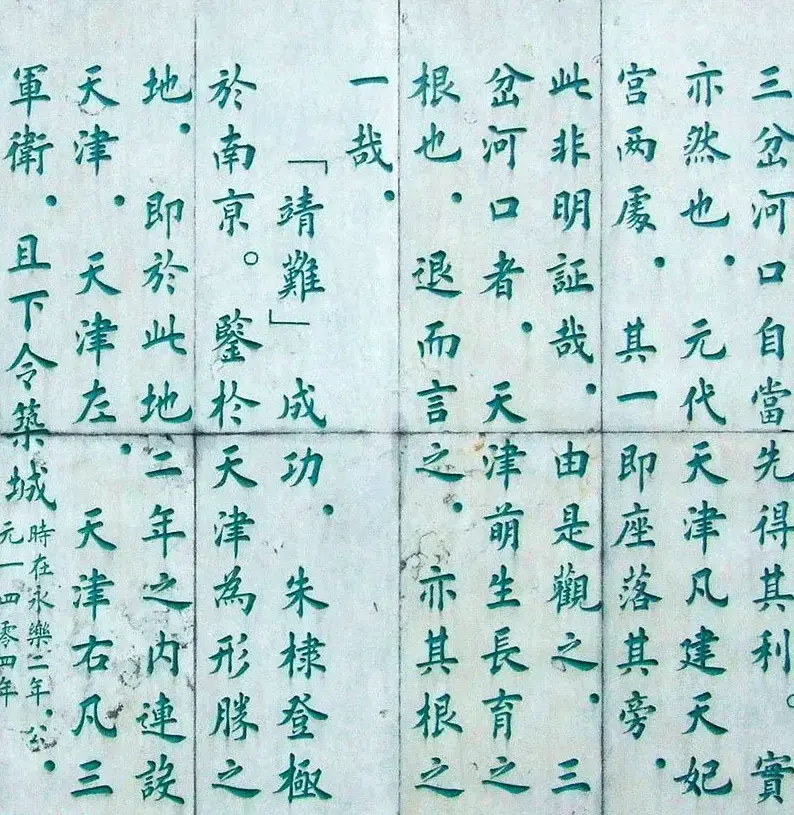 三岔河口自當先得其利。實
亦然也，元代天津凡建天妃
宫两處，其一即座落其旁，
此非明証哉，由是觀之，三
岔河口者，天津萌生長育之
根也，退而言之，亦其根之
一哉，
「靖難」成功，朱棣登極
於南京。鑒於天津為形勝之
地，即於此地二年之内連設
天津，天津左，天津右凡三
軍衛，且下令築城時在永樂二年，公元一四零四年，